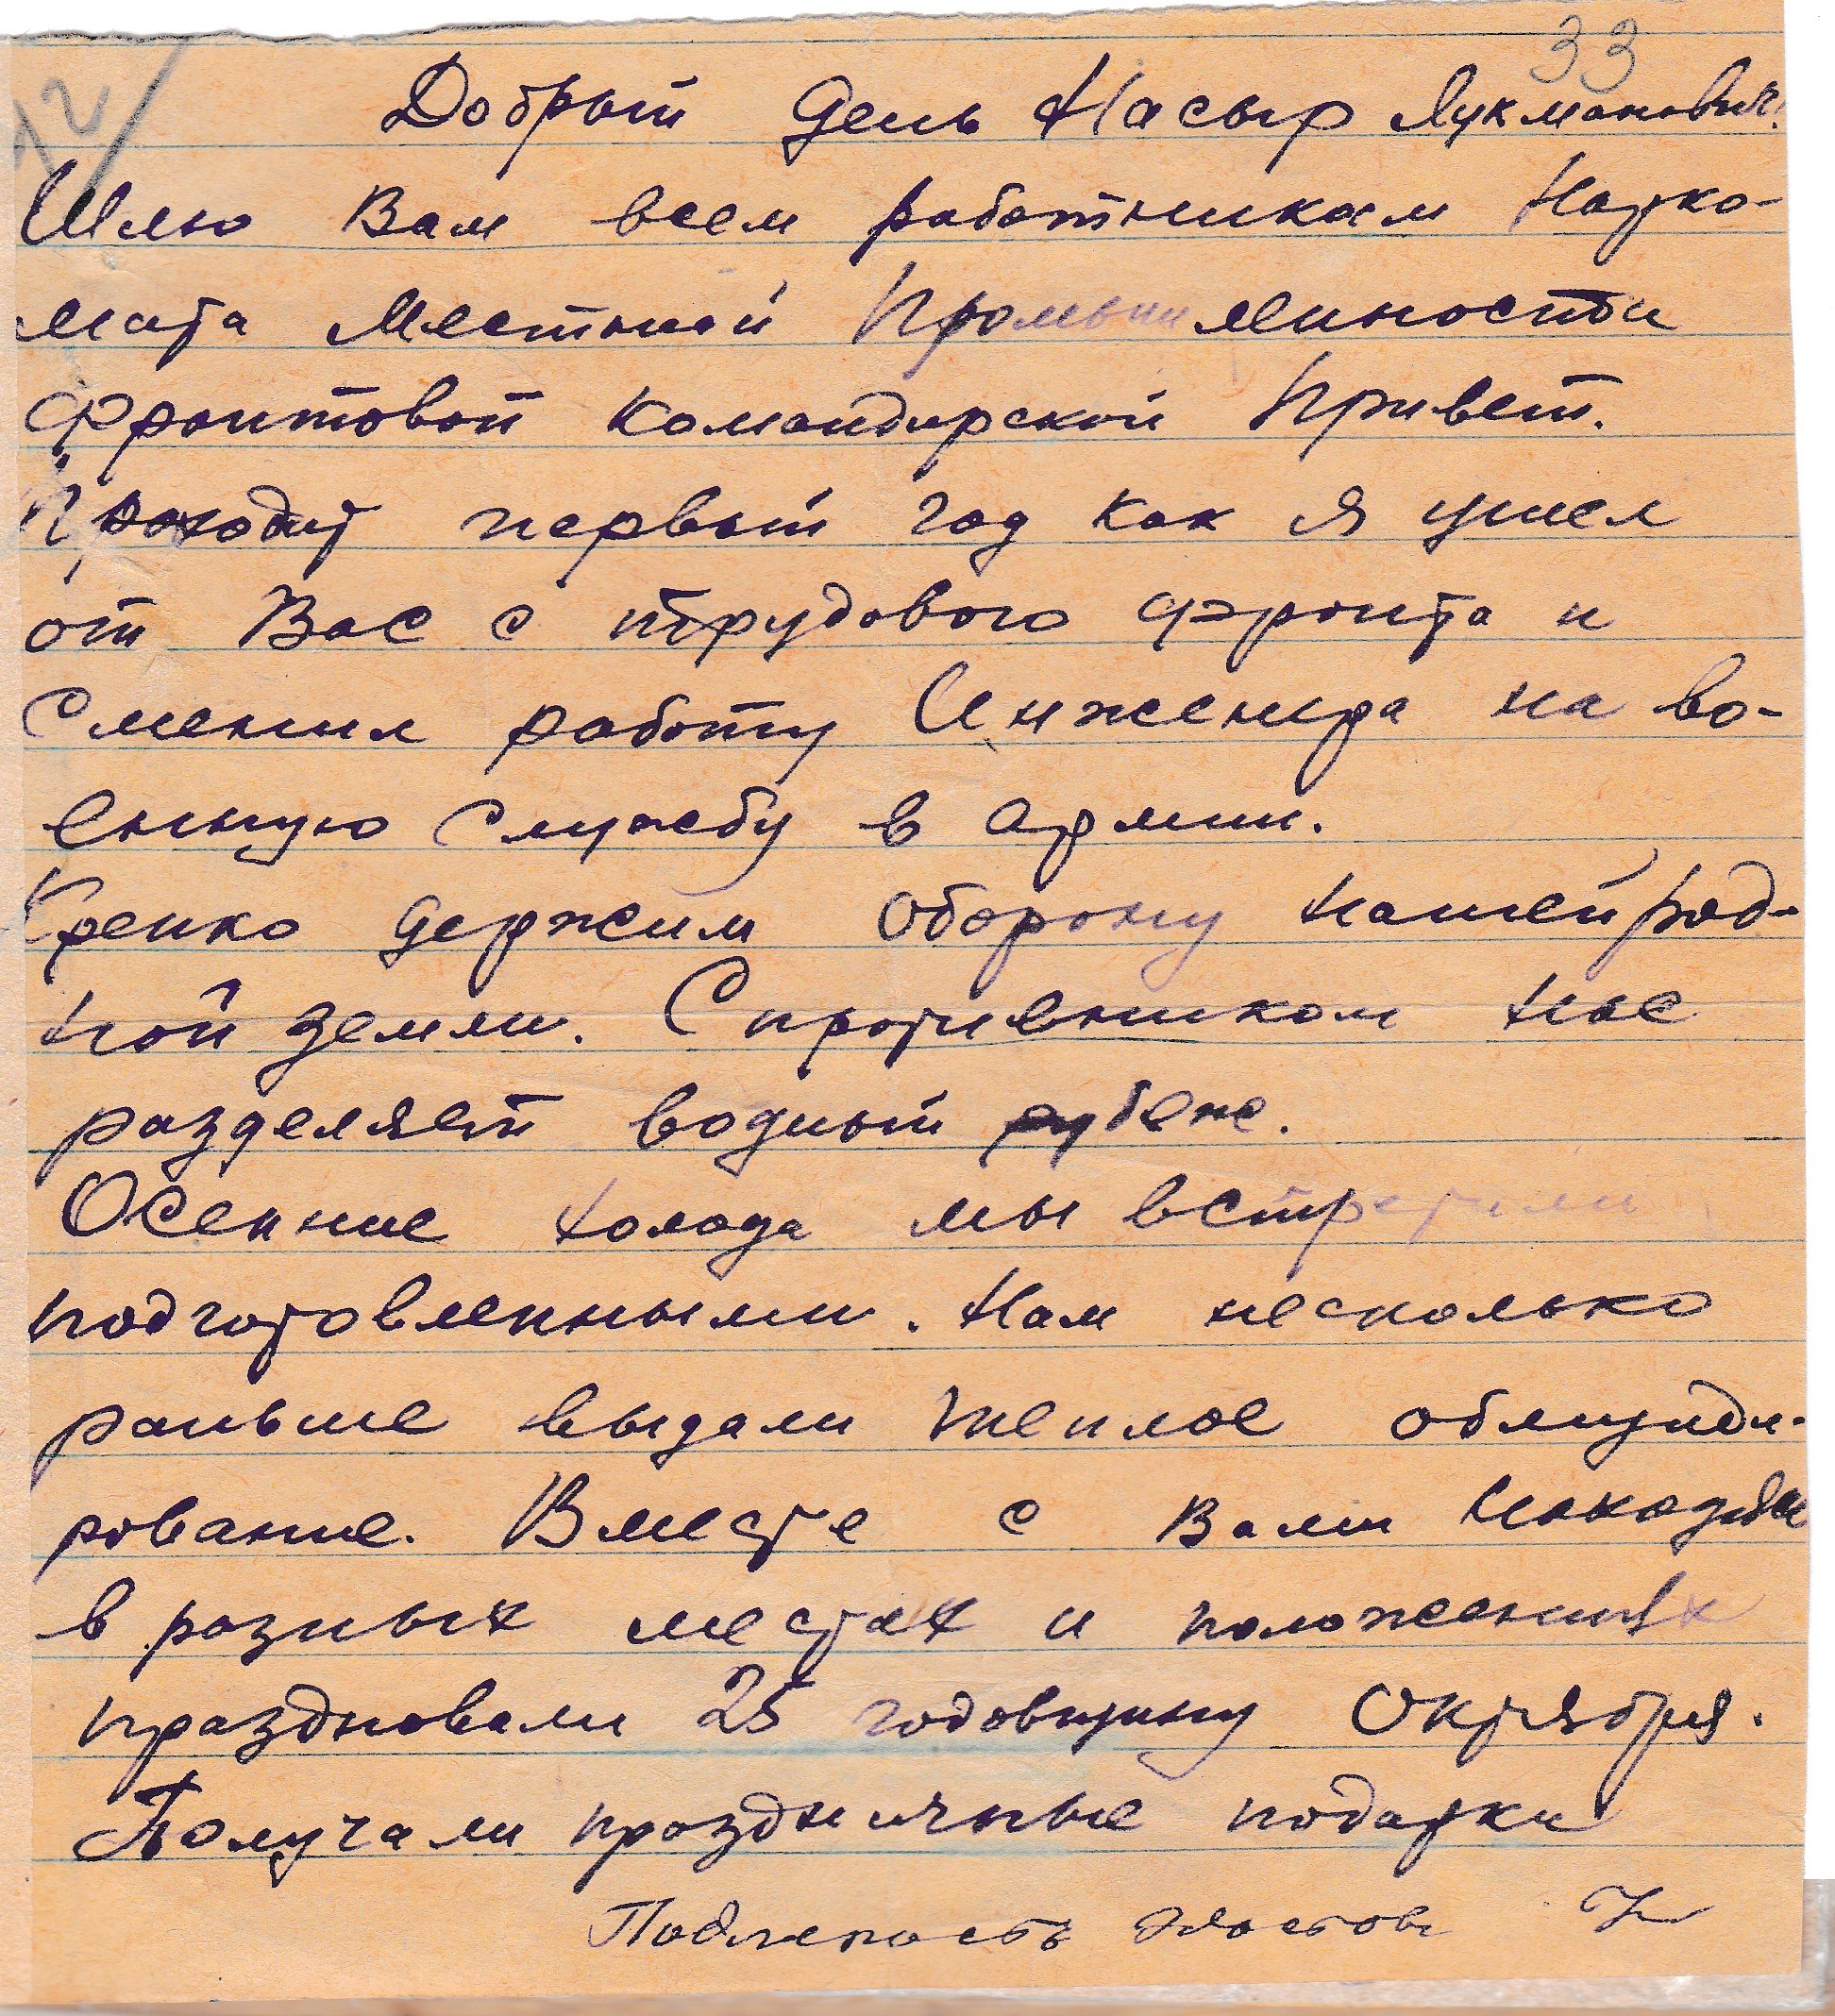 33
12
Добрый день Насыр Лукманович!
Шлю Вам всем работникам Нарко-
мата Местной Промышленности
фронтовой командирской Привет.
Проходит первый год как я ушел
от Вас с трудового фронта и
Сменил работу Инженера на во-
енную службу в армии.
Крепко держим оборону нашей род-
ной земли. С противником нас
разделяет водный рубеж.
Осенние холода мы встретили
подготовленными. Нам несколько
раньше выдали теплое обмунди-
рование. Вместе с Вами находясь
в разных местах и положениях
праздновали 25 годовщину Октября.
Получали праздничные подарки